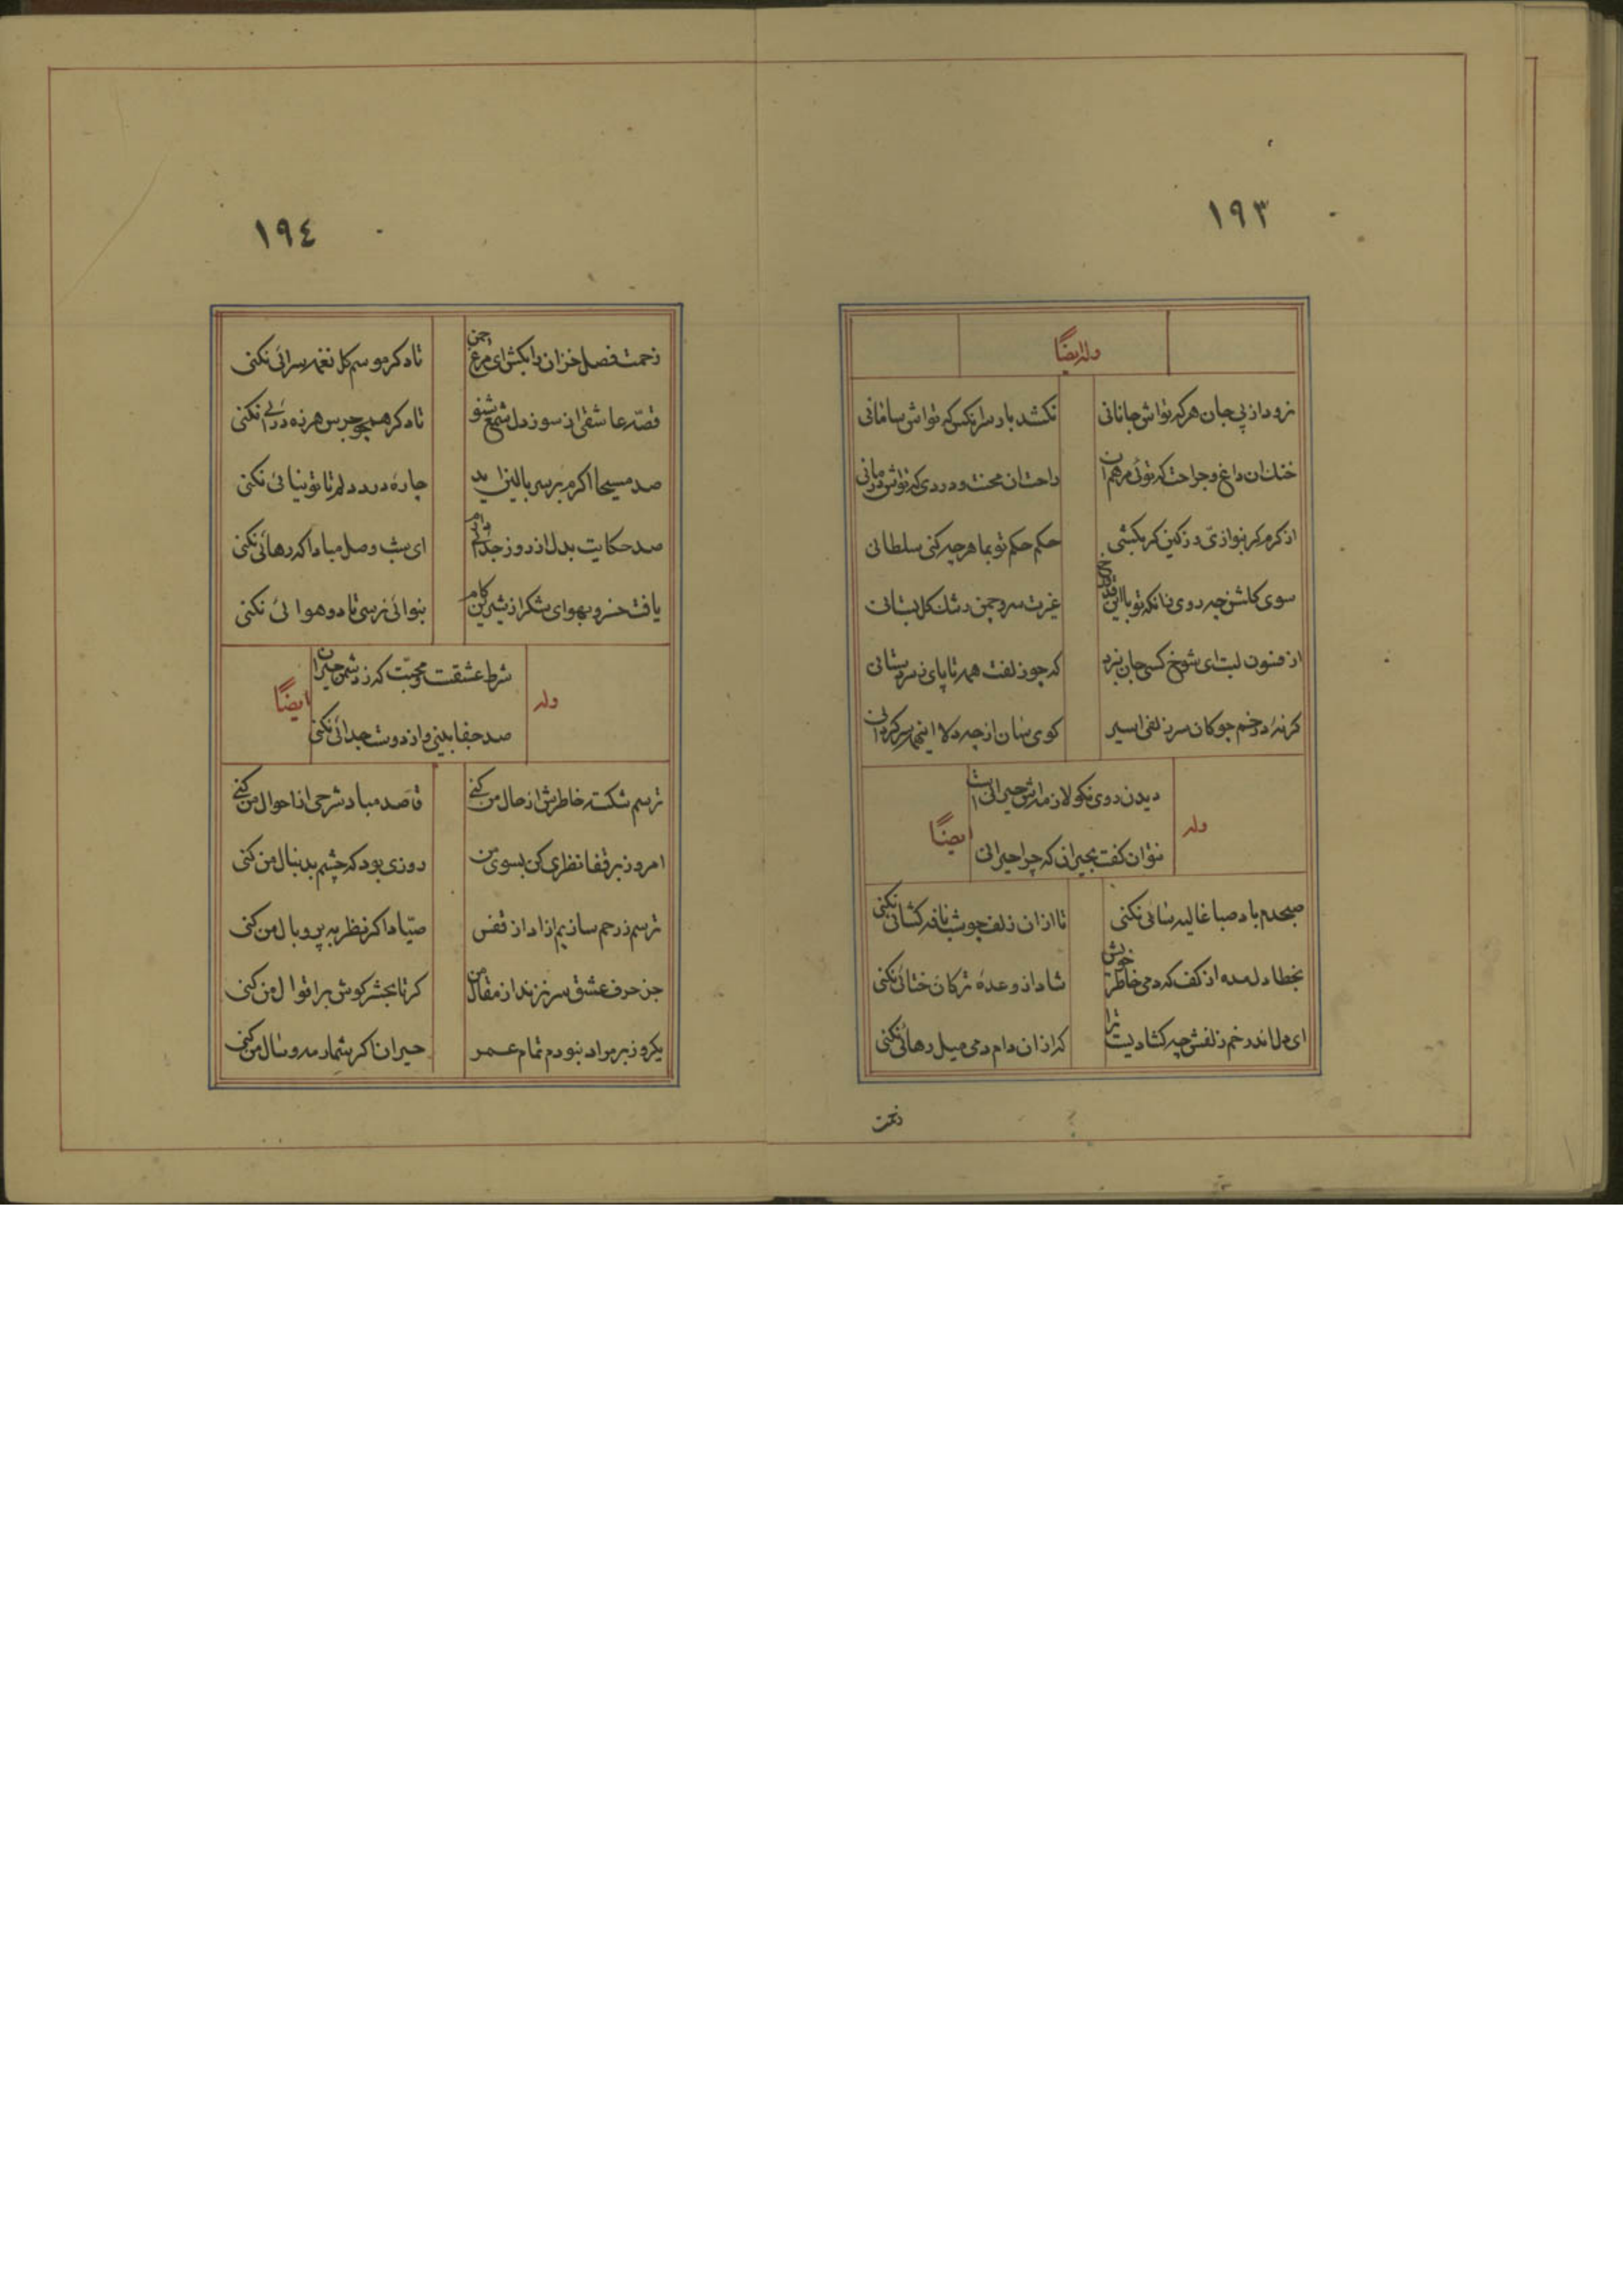 ١٩٣
وله ایضًا
نرود از پی جان هر که تواش جانانی
نکشد بار سر انکس که تواش سامانی
خنک ان داغ و جراحت که توئی مرهم ان
راحت ان محنت و دردی که تواش درمانی
از کرم کر بنوازی ور زکین کر بکشی
حکم حکم تو بما هر چه کنی سلطانی
سوی کلشن چه روی زانکه تو با این قد و رخ
غیرت سرو چمن رشک کل بستانی
از فسون لبت ای شوخ کسی جان نبرد
که چو زلفت همه تا پای ز سر دستانی
کر نهٔ در خم چوکان سر زلفی اسیر
کوی سان از چه دلا اینهمه سرکردانی
دیدن روی نکو لازمه اش حیرانی است
وله
ایضًا
نتوان کفت بحیران که چرا حیرانی
صبحدم باد صبا غالیه سائی نکنی
تا از ان زلف چو شب نافه کشائی نکنی
بخطا دل مده از کف که دمی خاطر خویش
شاد از وعدهٔ ترکان ختائی نکنی
ای دل اندر خم زلفش چه کشادیست ترا
که از ان دام دمی میل رهائی نکنی
زحمت
١٩٤
زحمت فصل خزان را بکش ای مرغ چمن
تا دکر موسم کل نغمه سرائی نکنی
قصّه عاشقی از سوز دل شمع شنو
تا دکر همچو جرس هرزه درائی نکنی
صد مسیحا اکرم بر سر بالین اید
چارهٔ درد دلم تا تو نیائی نکنی
صد حکایت بدل از روز جدائی دارم
ای شب وصل مبادا که رهائی نکنی
یافت خسرو بهوای شکر از شیرین کام
بنوائی نرسی تا دو هوائی نکنی
شرط عشقست و محبّت که ز دشمن حیران
وله
ایضًا
صد جفا بینی و از دوست جدائی نکنی
ترسم شکسته خاطرش از حال من کنی
قاصد مباد شرحی از احوال من کنی
امروز بر قفا نظری کن بسوی من
روزی بود که چشم بدنبال من کنی
ترسم ز رحم سازیم ازاد از قفس
صیّاد اکر نظر به پر و بال من کنی
جز حرف عشق سر نزند از مقال من
کر تا بحشر کوش بر اقوال من کنی
یکروز بر مراد نبودم تمام عمر
حیران اکر شمار مه و سال من کنی